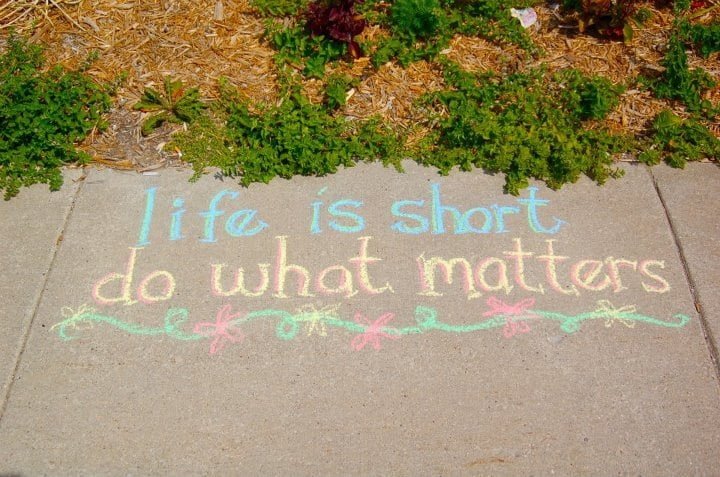 life is short
do what matters